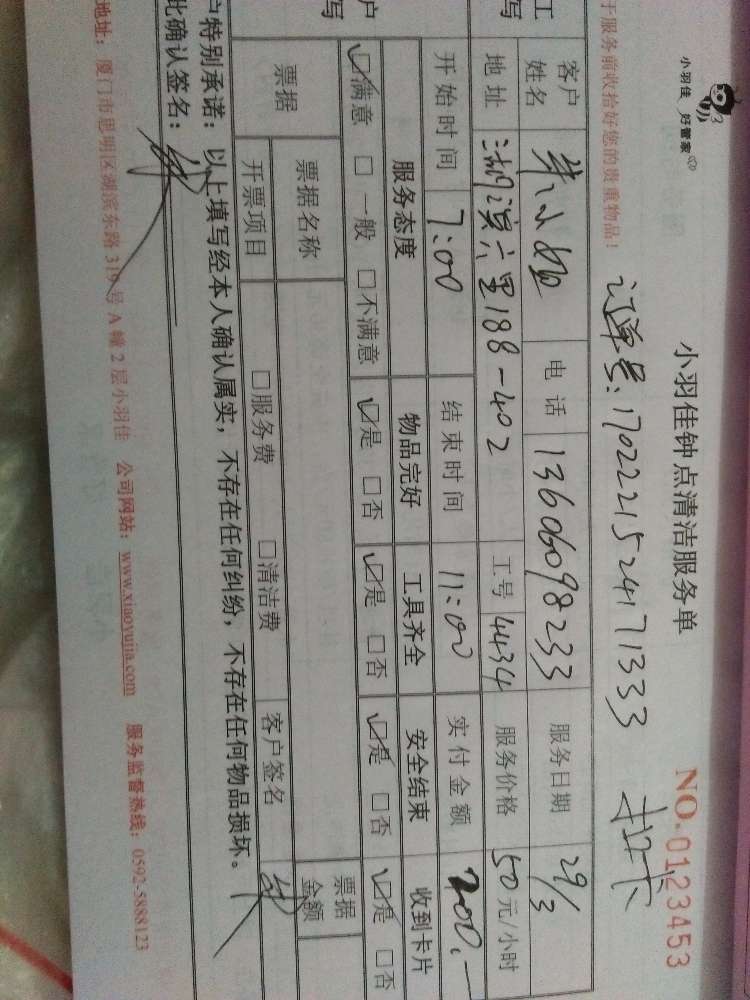 小羽佳 好管家
小羽佳钟点清洁服务单
NO.0123453
订单号:170221524171333 拉卡
于服务前收拾好您的贵重物品!
工 写
客户姓名 朱小姐 电话 13606098233 服务日期 29/3
地址 湖滨六里188-402 工号 4434 服务价格 50元/小时
开始时间 7:00 结束时间 11:00 实付金额 200.-
户 写
服务态度 物品完好 工具齐全 安全结束 收到卡片
☑满意 □一般 □不满意 ☑是 □否 ☑是 □否 ☑是 □否 ☑是 □否
票据 票据名称 票据金额
开票项目 □服务费 □清洁费 客户签名
户特别承诺:以上填写经本人确认属实,不存在任何纠纷,不存在任何物品损坏。
此确认签名:
地址:厦门市思明区湖滨东路319号A幢2层小羽佳 公司网站:www.xiaoyujia.com 服务监督热线:0592-5888123